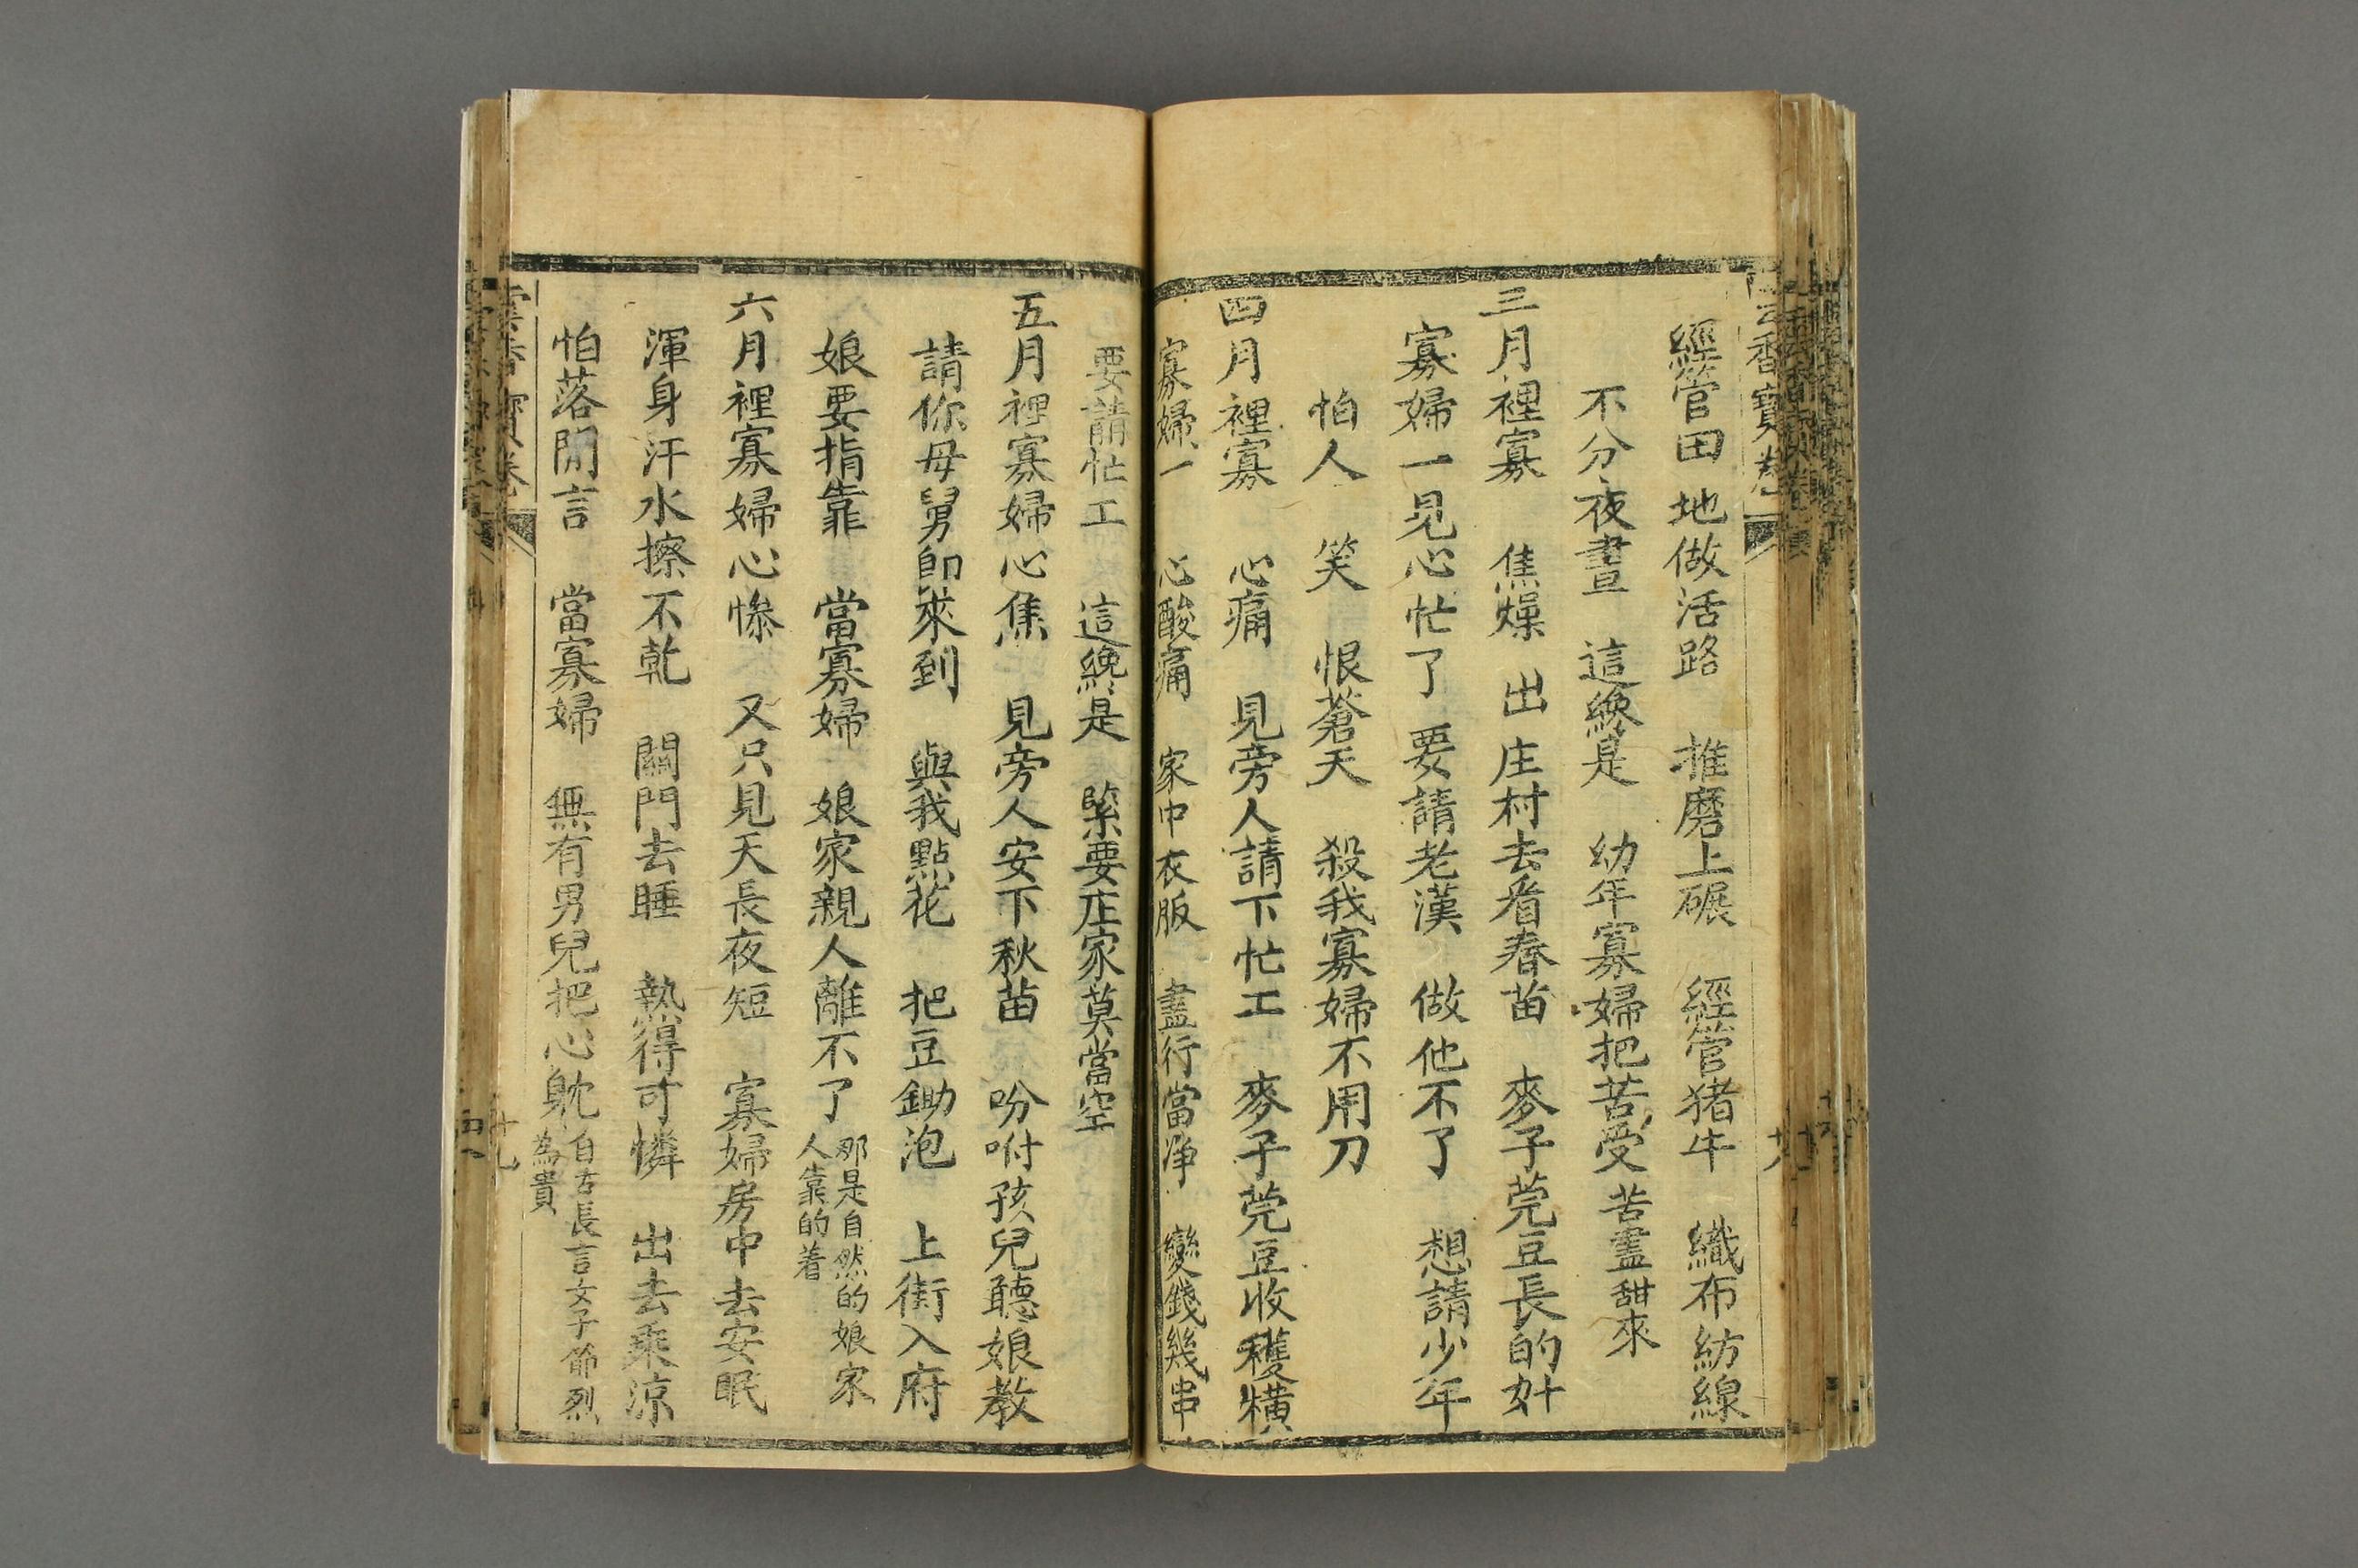 經管田地做活路　推磨上碾　經管猪牛　織布紡線
不分夜晝　這纔是　幼年寡婦把苦受　苦盡甜來
三月裡寡　焦燥　出庄村去看春苗　麥子莞豆長的好
寡婦一見心忙了　要請老漢　做他不了　想請少年
怕人笑　恨蒼天　殺我寡婦不用刀
四月裡寡　心痛　見旁人請下忙工　麥子莞豆收穫橫
寡婦一　心酸痛　家中衣服　盡行當净　變錢幾串
要請忙工　這纔是　緊要庄家莫當空
五月裡寡婦心焦　見旁人安下秋苗　吩咐孩兒聽娘教
請你母舅即來到　與我點花　把豆鋤泡　上街入府
娘要指靠　當寡婦　娘家親人離不了　那是自然的娘家
人靠的着
六月裡寡婦心慘　又只見天長夜短　寡婦房中去安眠
渾身汗水擦不乾　關門去睡　熱得可憐　出去乘涼
怕落閒言　當寡婦　無有男兒把心躭　自古長言女子節烈
為貴
香寶卷
十九